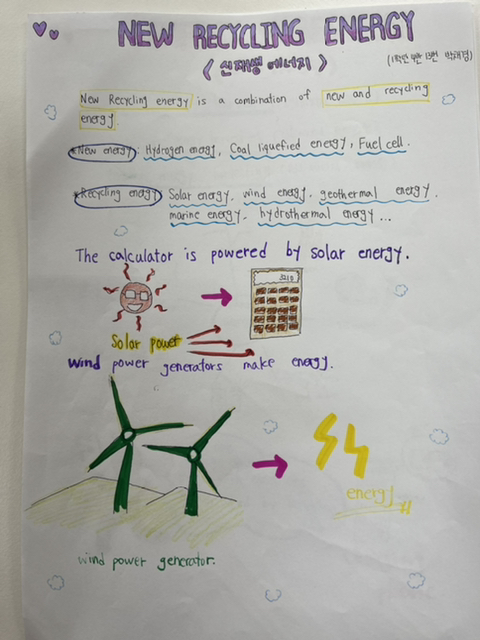 NEW RECYCLING ENERGY
< 신재생 에너지 >
New Recycling energy is a combination of new and recycling
energy
*New energy : Hydrogen energy, Coal liquefied energy, Fuel cell.
*Recycling energy Solar energy. wind energy. geothermal energy.
marine energy. hydrothermal energy...
The calculator is powered by solar energy.
Solar power
Wind power generators make energy.
energy
wind power generator.